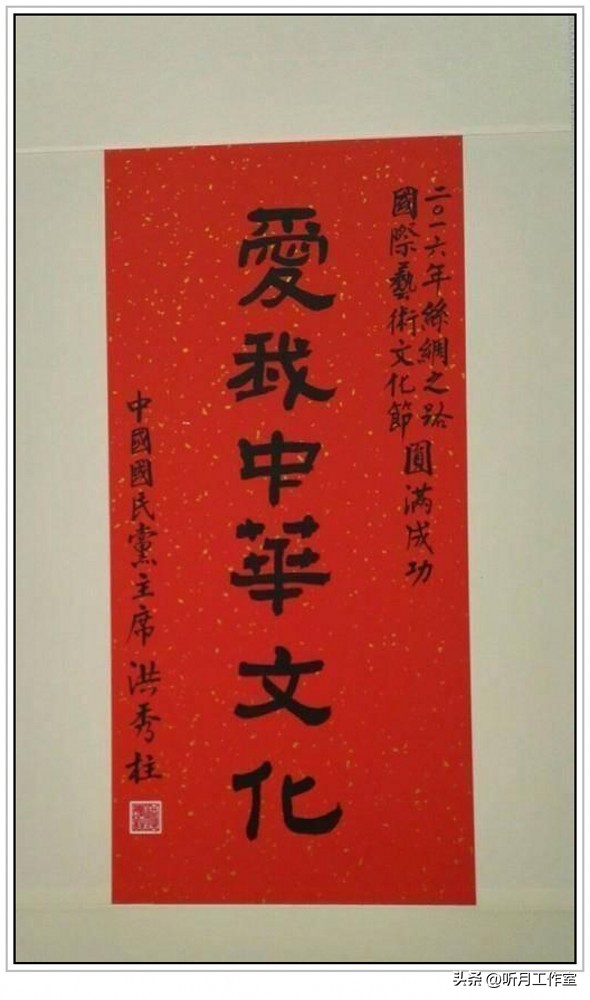 二○一六年絲綢之路
國際藝術文化節
圓滿成功
愛我中華文化
中國國民黨主席 洪秀柱
头条 @听月工作室